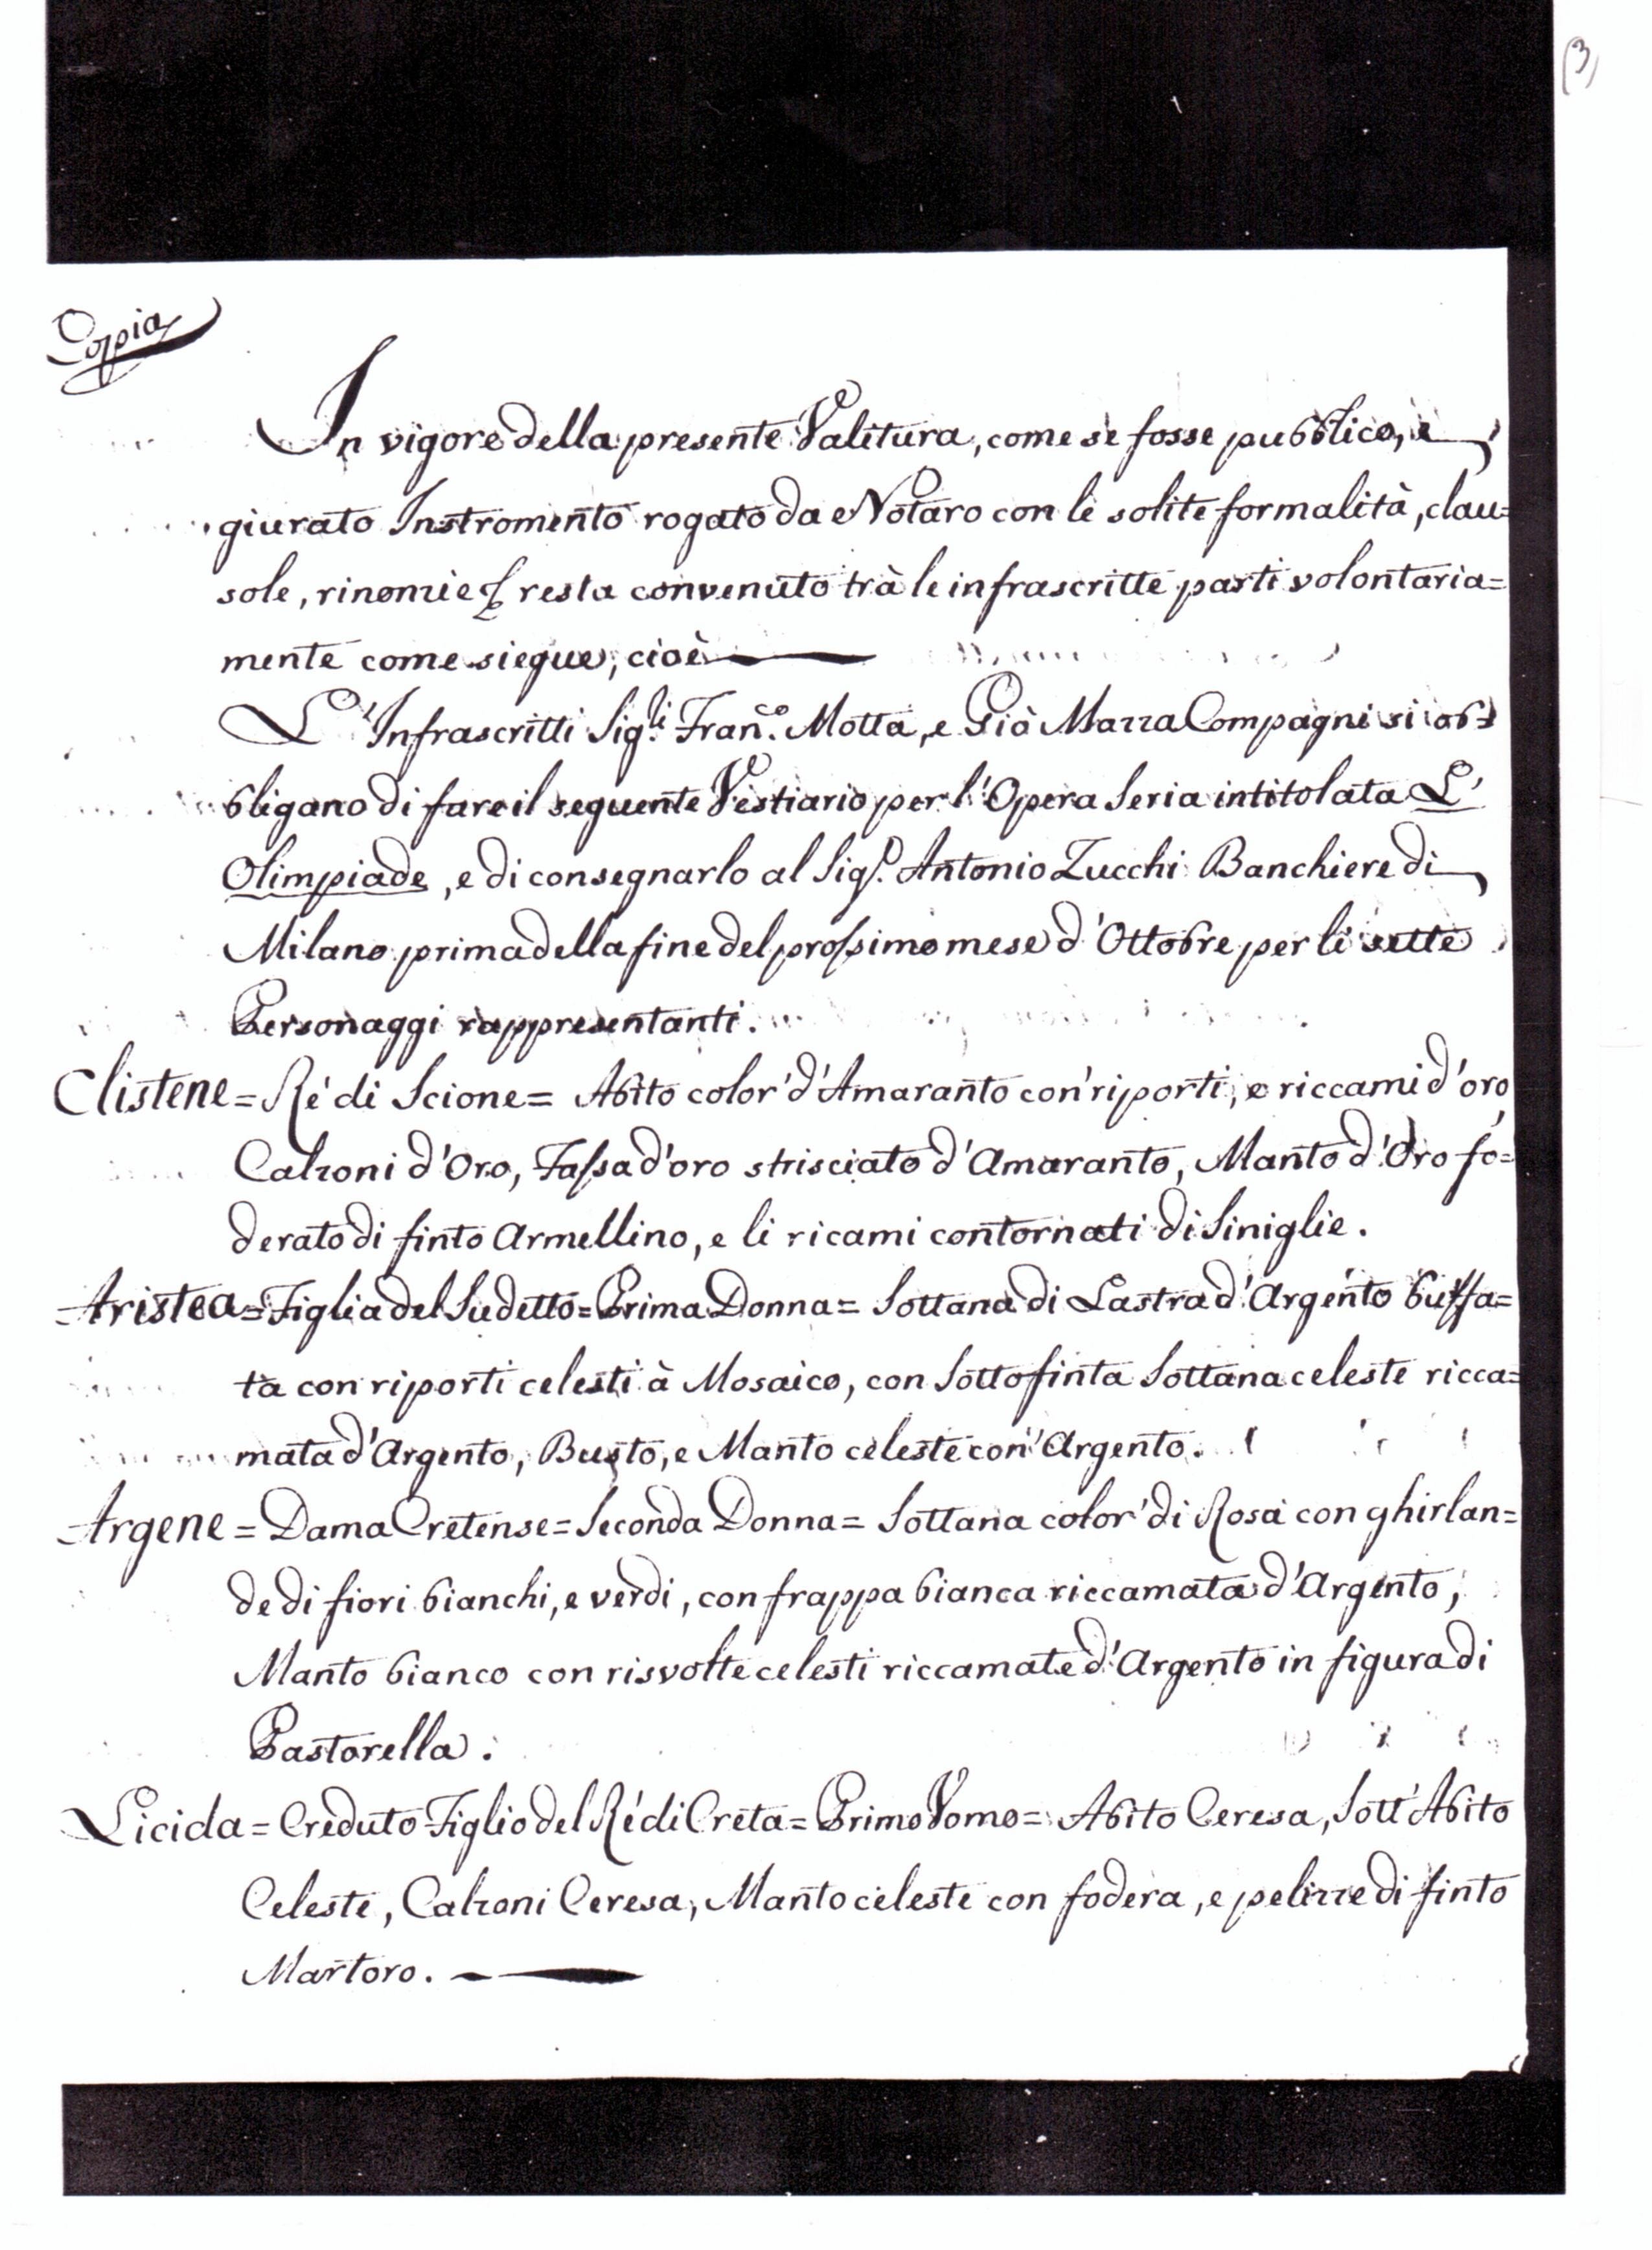 (3)
Copia
In vigore della presente Valitura, come se fosse pubblico, e
giurato Instromento rogato da Notaro con le solite formalità, clau=
sole, rinonzie & resta convenuto trà le infrascritte parti volontaria=
mente come siegue, cioè
L'Infrascritti Sig.li Fran.co Motta, e Giò Mazza Compagni si ob=
bligano di fare il seguente Vestiario per l'Opera Seria intitolata L'
Olimpiade, e di consegnarlo al Sig.r Antonio Zucchi Banchiere di
Milano prima della fine del prossimo mese d'Ottobre per li sette
Personaggi rappresentanti.
Clistene = Ré di Scione = Abito color' d'Amaranto con' riporti, e riccami d'oro
Calzoni d'Oro, Fassa d'oro strisciato d'Amaranto, Manto d'Oro fo=
derato di finto Armellino, e li ricami contornati di Siniglie.
Aristea = Figlia del Sudetto = Prima Donna = Sottana di Lastra d'Argento buffa=
ta con riporti celesti à Mosaico, con Sottofinta Sottana celeste ricca=
mata d'Argento, Busto, e Manto celeste con' Argento.
Argene = Dama Cretense = Seconda Donna = Sottana color' di Rosa con ghirlan=
de di fiori bianchi, e verdi, con frappa bianca riccamata d'Argento,
Manto bianco con risvolte celesti riccamate d'Argento in figura di
Pastorella.
Licida = Creduto Figlio del Ré di Creta = Primo Vomo = Abito Ceresa, Sott'Abito
Celeste, Calzoni Ceresa, Manto celeste con fodera, e pelizze di finto
Martoro.